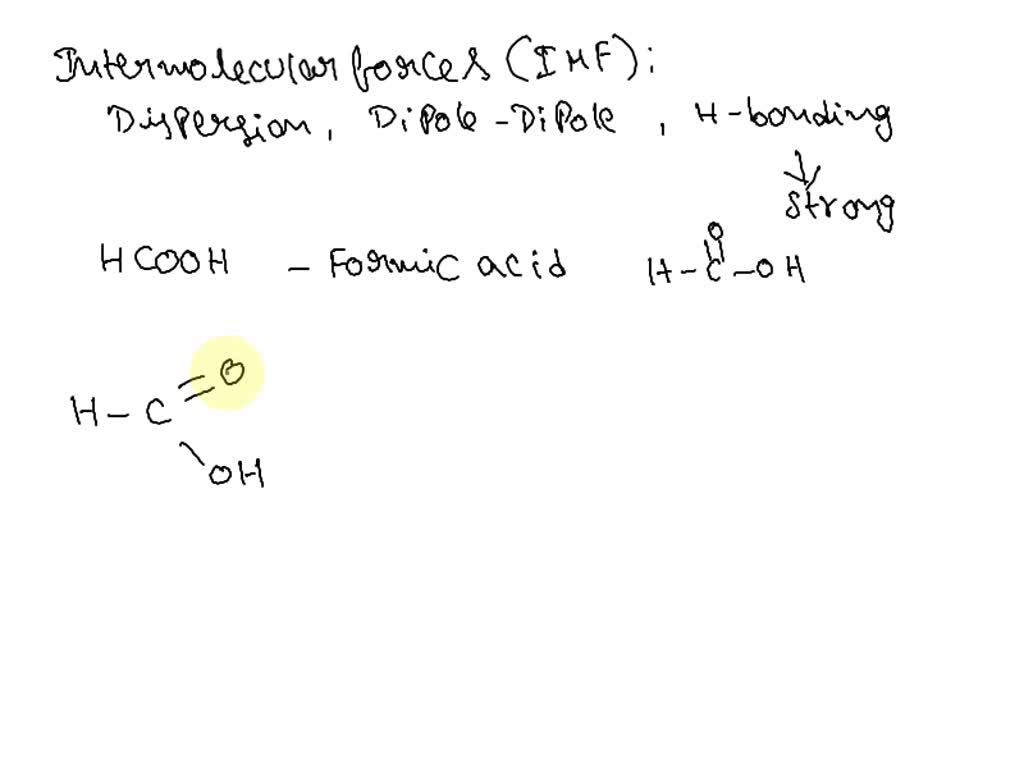 Intermolecular forces (IMF):
Dispersion, Dipole-Dipole, H-bonding
Strong
HCOOH - Formic acid
O
H-C-OH
O
H-C
OH